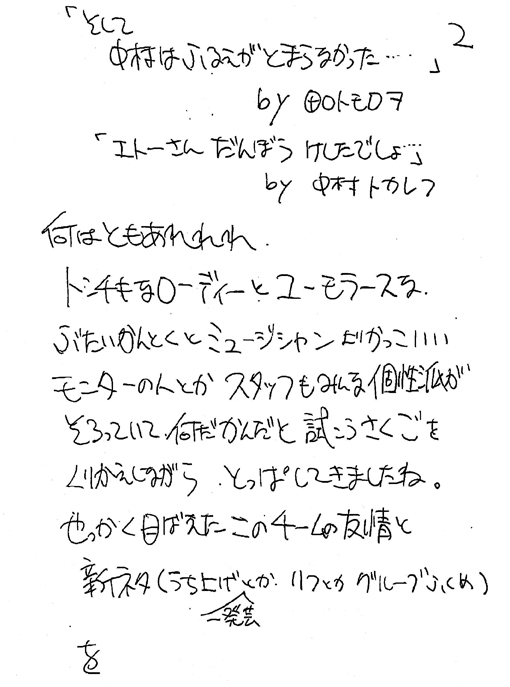 「そして 2
中村はふるえがとまらなかった……」
by ⊕ロトモロヲ
「エトーさん だんぼう けしたでしょ…」
by 中村トカレフ
何はともあれれれ.
トンチキなローディーと ユーモラースな.
ぶたいかんとくとミュージシャンよりかっこいいい
モニターの人とか スタッフもみんな個性派が
そろっていて、何だかんだと 試こうさくごを
くりかえしながら、とっぱしてきましたね。
せっかく目ばえた このチームの友情と
新ネタ(うち上げとか リフとか グルーブふくめ)
一発芸
を